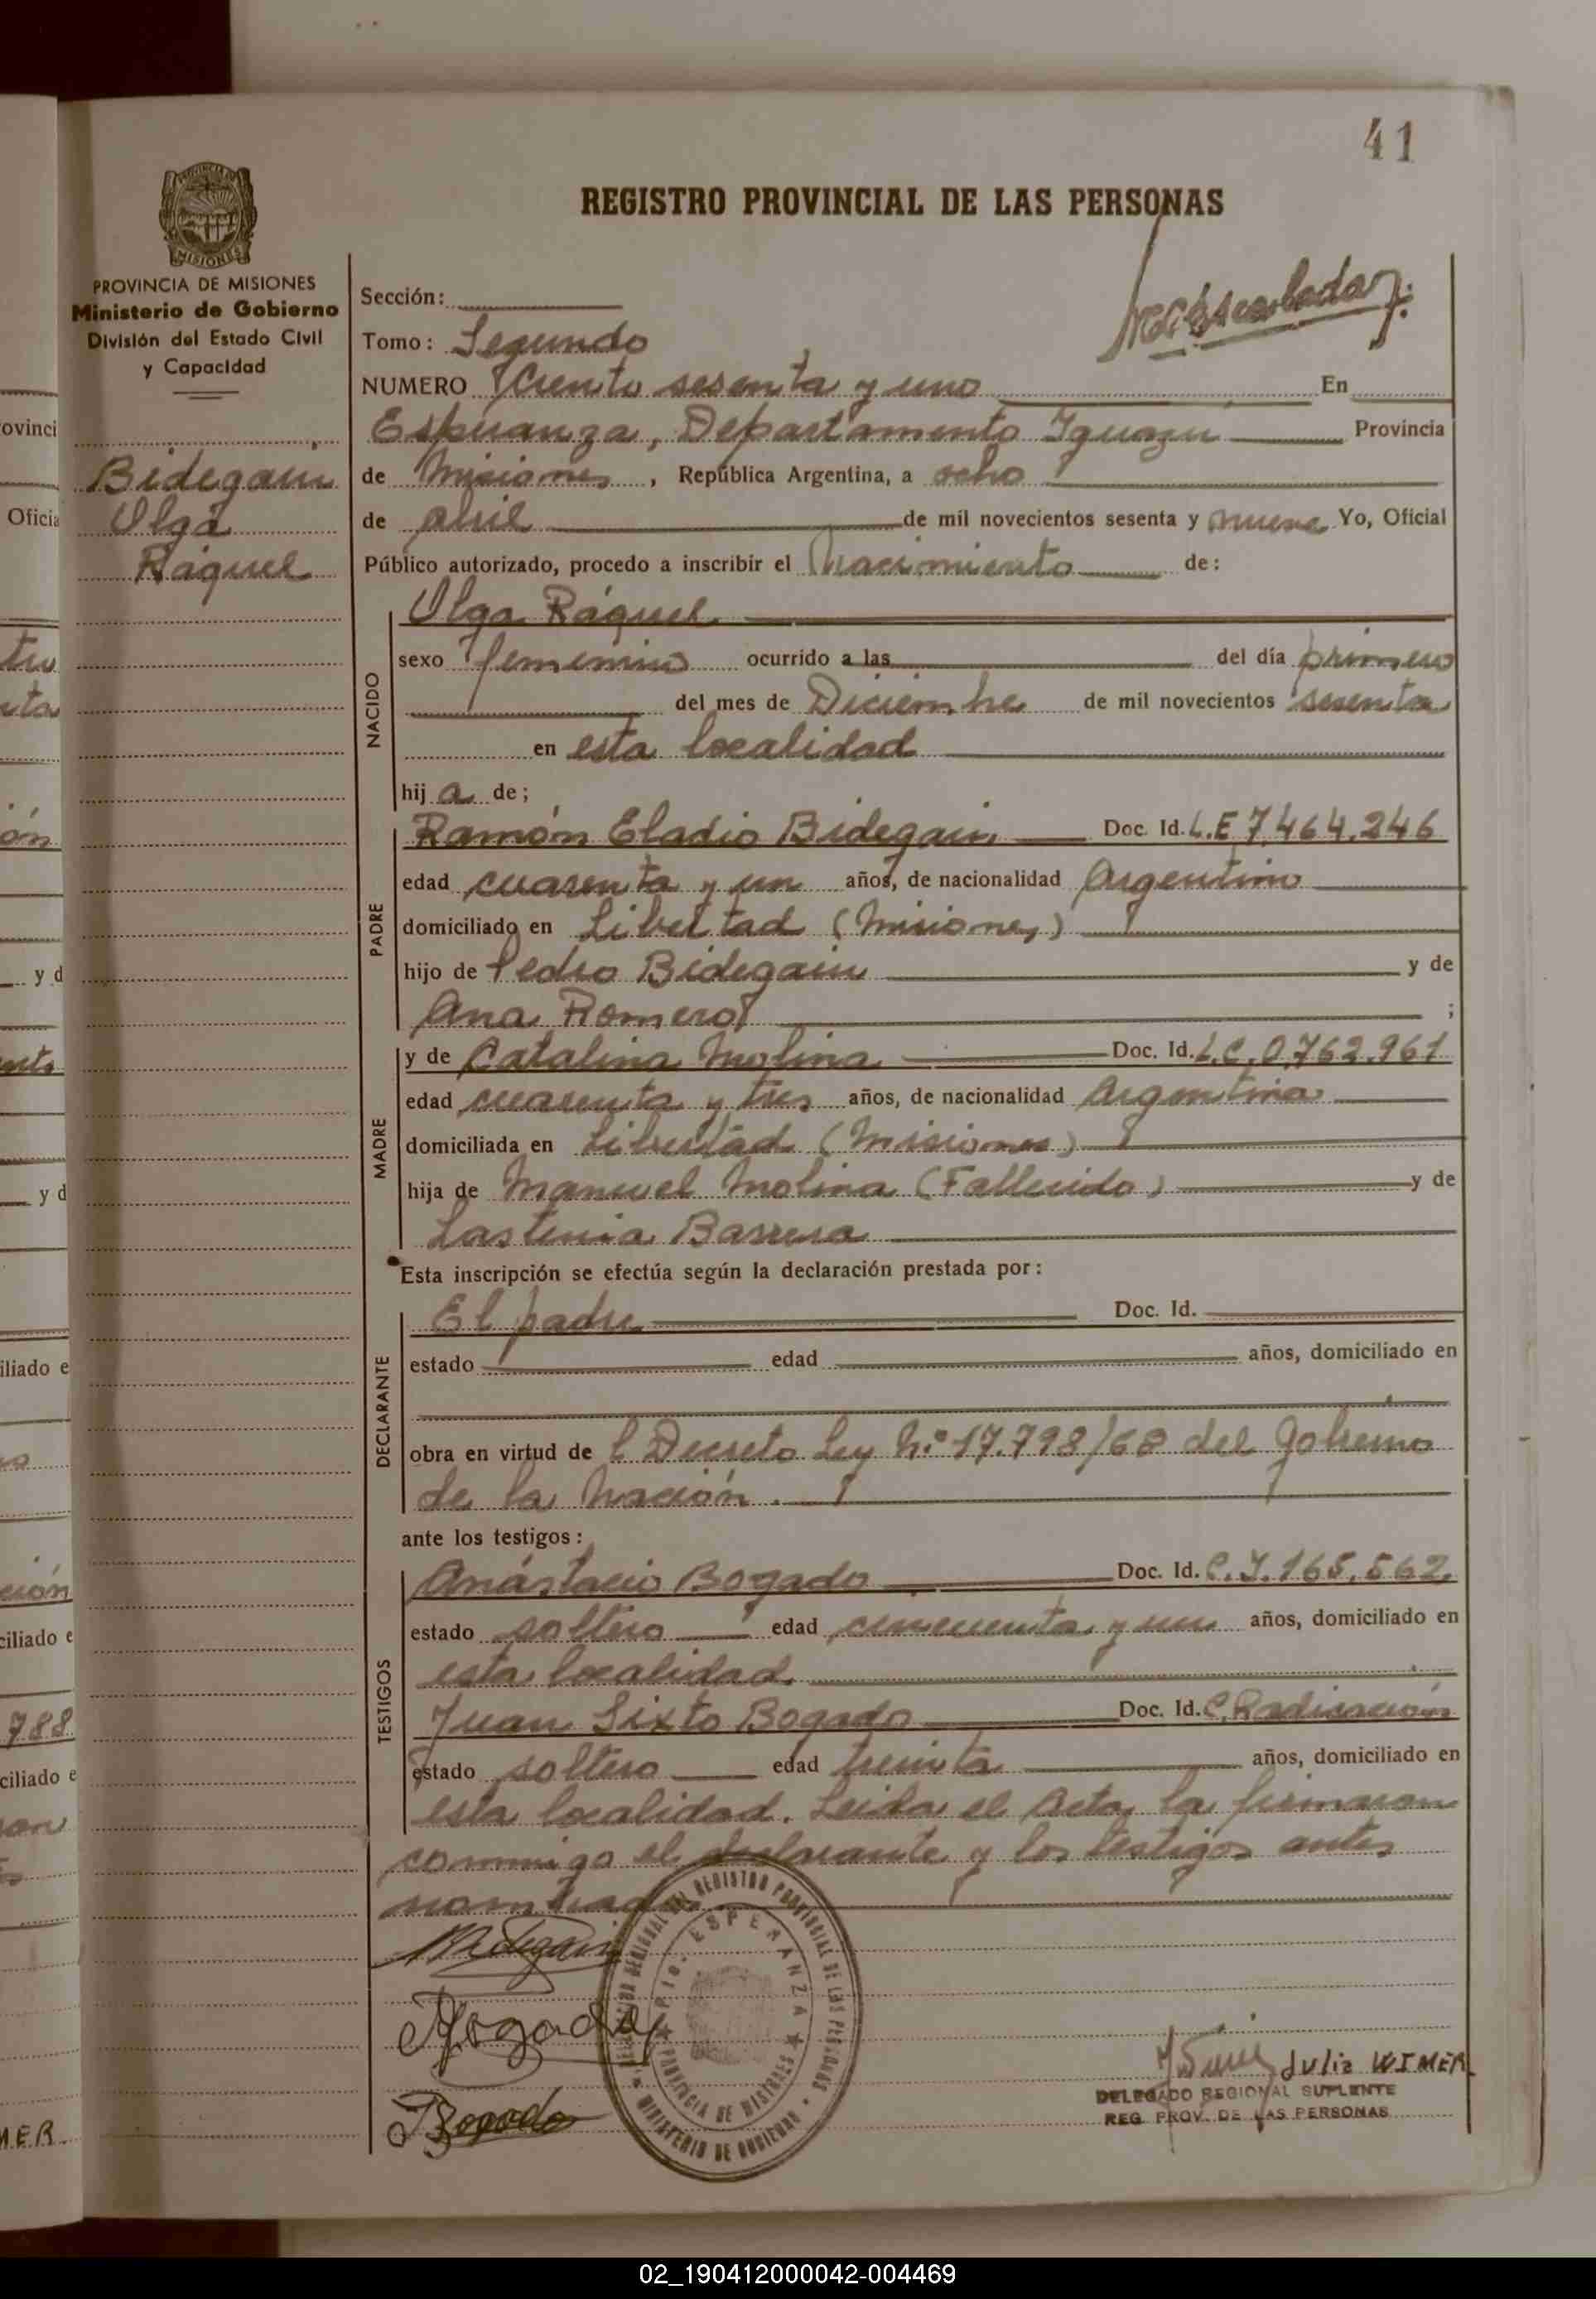 41
REGISTRO PROVINCIAL DE LAS PERSONAS
PROVINCIA DE MISIONES
MISIONES
PROVINCIA DE MISIONES
Ministerio de Gobierno
División del Estado Civil
y Capacidad
Bidegain
Olga
Ráquel
Sección:
Tomo: Segundo
NUMERO Ciento sesenta y uno En
Esperanza, Departamento Iguazú Provincia
de Misiones, República Argentina, a ocho
de abril de mil novecientos sesenta y nueve Yo, Oficial
Público autorizado, procedo a inscribir el Nacimiento de:
NACIDO
Olga Ráquel
sexo femenino ocurrido a las del día primero
del mes de Diciembre de mil novecientos sesenta
en esta localidad
hij a de;
PADRE
Ramón Eladio Bidegain Doc. Id. L.E 7.464.246
edad cuarenta y un años, de nacionalidad Argentino
domiciliado en Libertad (Misiones)
hijo de Pedro Bidegain y de
Ana Romero ;
MADRE
y de Catalina Molina Doc. Id. L.C. 0.762.961
edad cuarenta y tres años, de nacionalidad Argentina
domiciliada en Libertad (Misiones)
hija de Manuel Molina (Fallecido) y de
Lastenia Barrera
Esta inscripción se efectúa según la declaración prestada por:
DECLARANTE
El padre Doc. Id.
estado edad años, domiciliado en
obra en virtud de l Decreto Ley N.º 17.798/68 del Gobierno
de la Nación.
ante los testigos:
TESTIGOS
Anástacio Bogado Doc. Id. C.I. 165.562
estado soltero edad cincuenta y un años, domiciliado en
esta localidad.
Juan Sixto Bogado Doc. Id. C. Radicación
estado soltero edad treinta años, domiciliado en
esta localidad. Leida el Acta, la firmaron
conmigo el declarante y los testigos antes
Bidegain
Bogado
Bogado
DEL REGISTRO PROVINCIAL DE LAS PERSONAS
MINISTERIO DE GOBIERNO
PTO. ESPERANZA
PROVINCIA DE MISIONES
Julia WIMER
DELEGADO REGIONAL SUPLENTE
REG. PROV. DE LAS PERSONAS
ovinci
Oficia
y d
y d
iliado e
ciliado e
788
ciliado e
MER
02_190412000042-004469